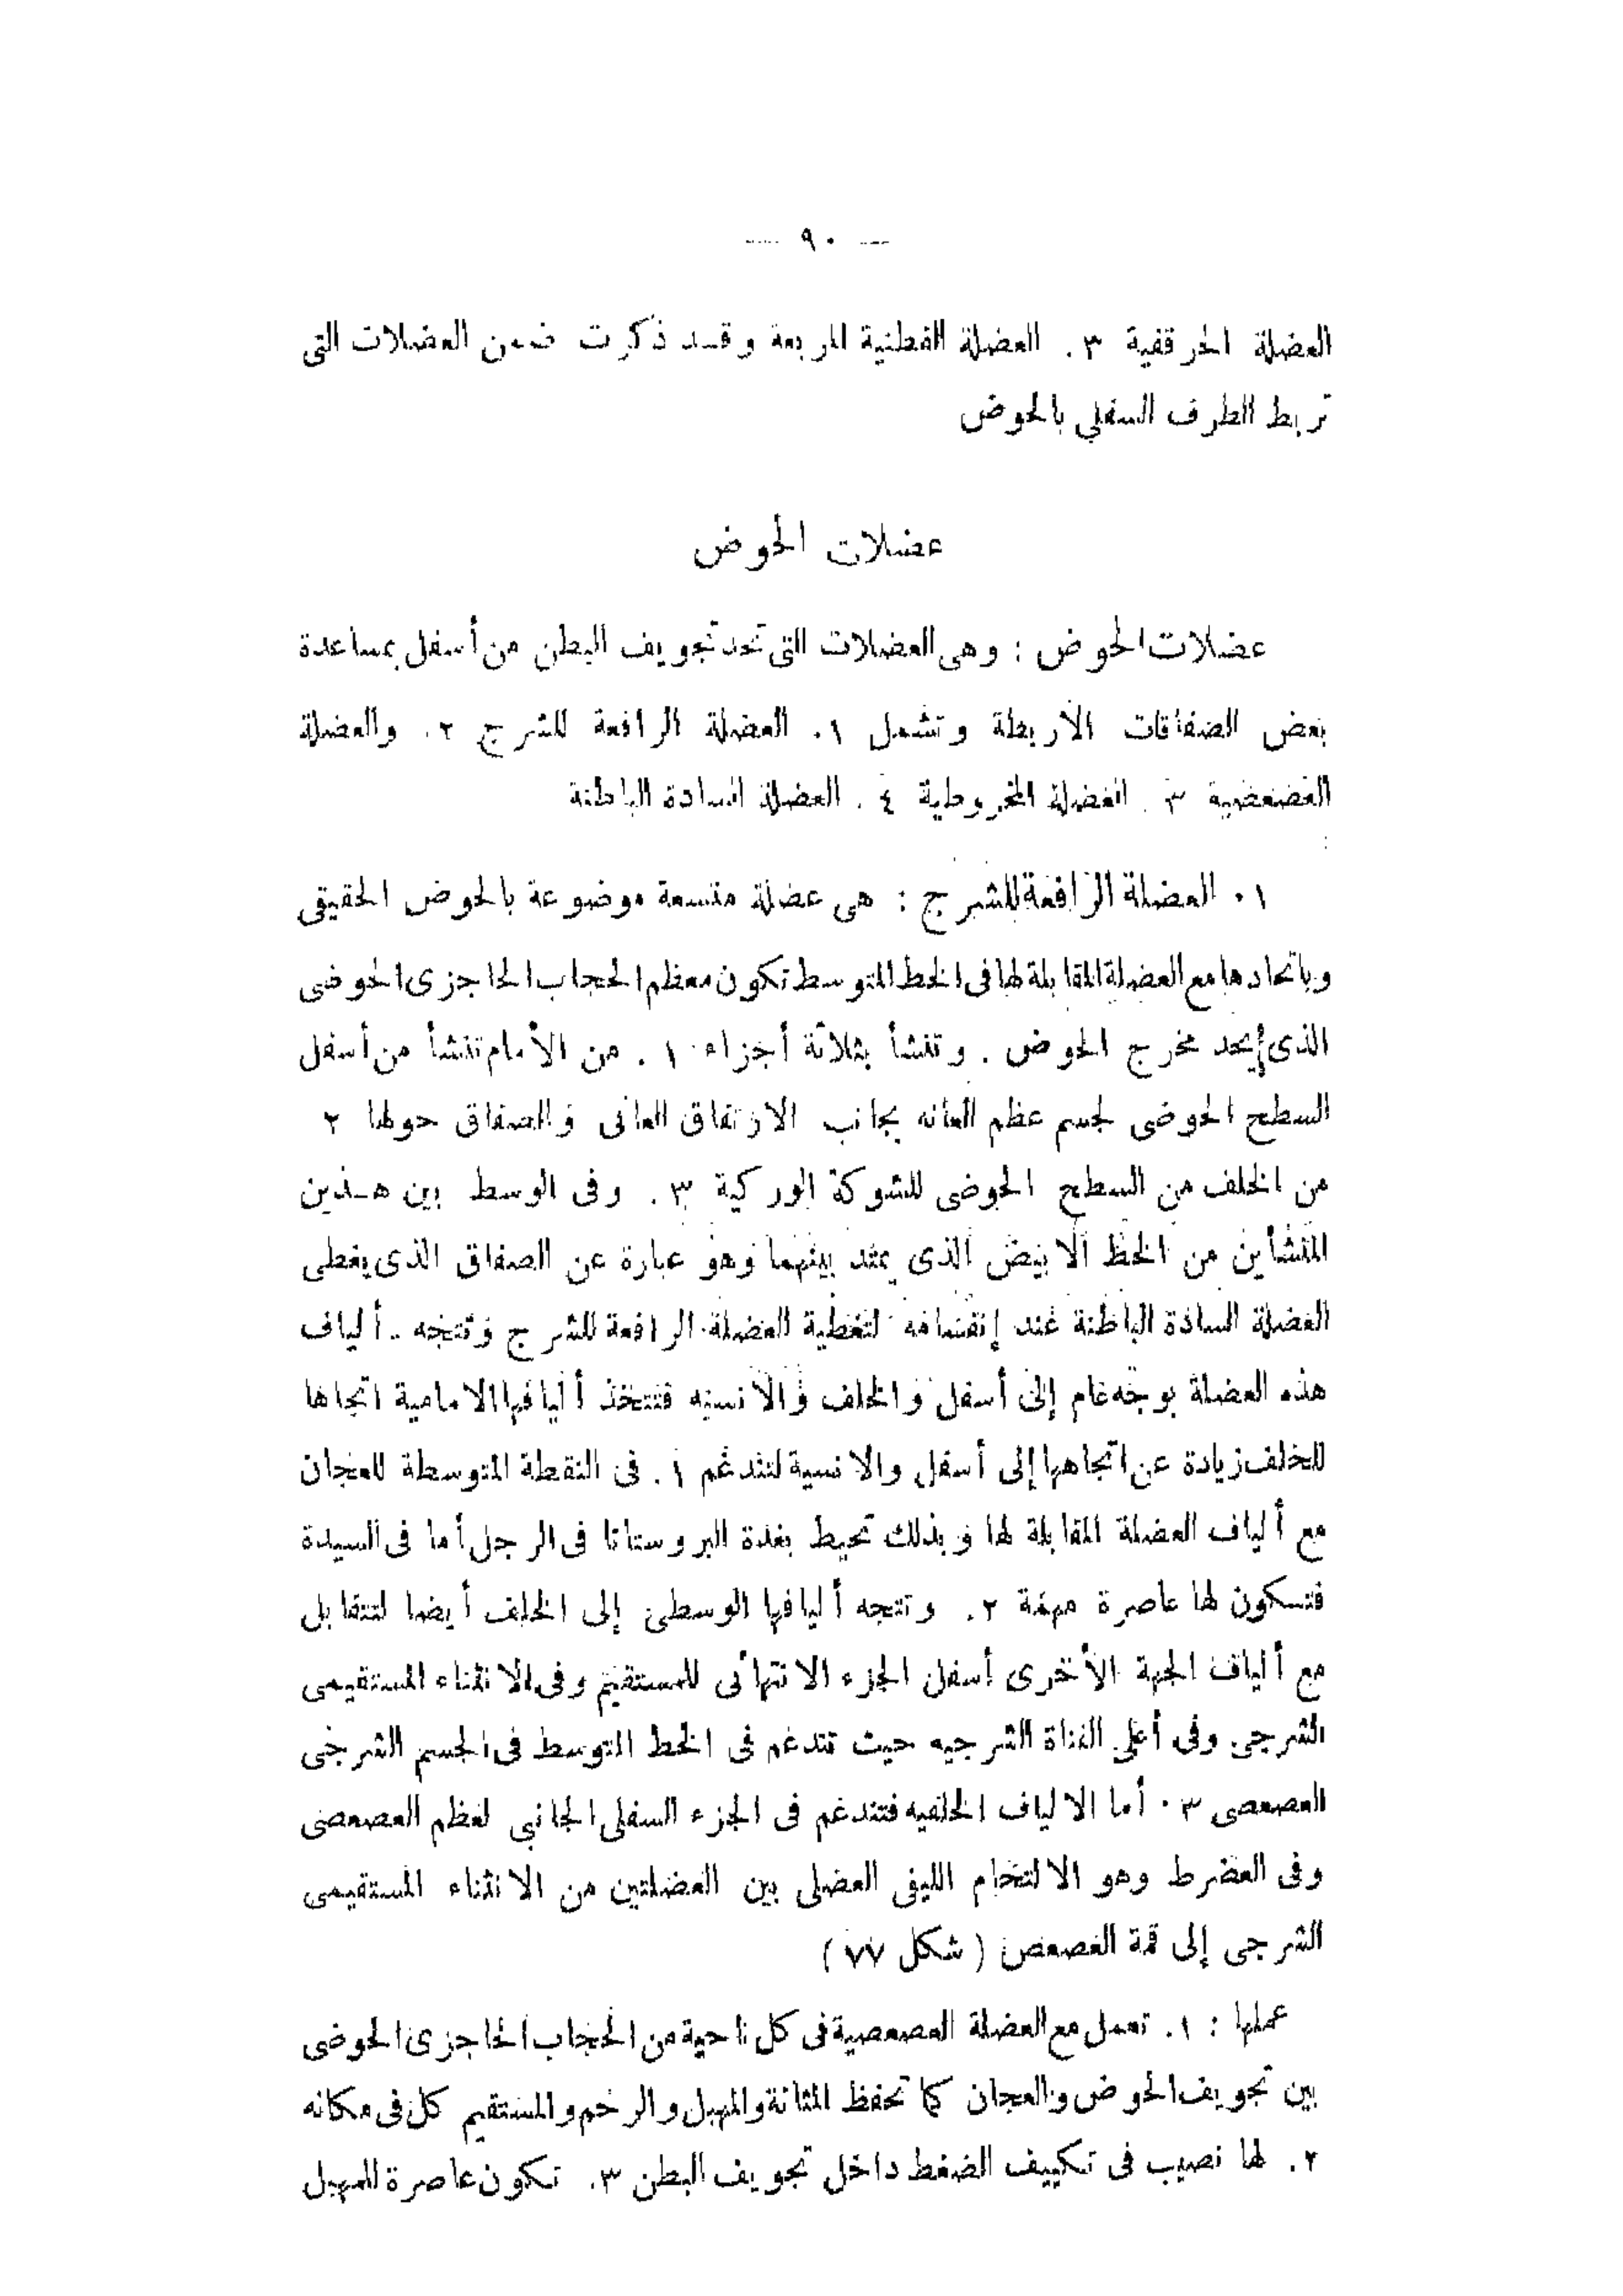 — ٩٠ —
العضلة الحرقفية ٣. العضلة القطنية المربعة وقد ذكرت ضمن العضلات التى
تربط الطرف السفلي بالحوض
عضلات الحوض
عضلات الحوض : وهى العضلات التى تحد تجويف البطن من أسفل بمساعدة
بعض الصفاقات الأربطة وتشمل ١. العضلة الرافعة للشرج ٢. والعضلة
العصعصية ٣. العضلة المخروطية ٤. العضلة السادة الباطنة
١. العضلة الرافعة للشرج : هى عضلة متسعة موضوعة بالحوض الحقيقى
وباتحادها مع العضلة المقابلة لها فى الخط المتوسط تكون معظم الحجاب الحاجزى الحوضى
الذى يحد مخرج الحوض . وتنشأ بثلاثة أجزاء ١. من الأمام تنشأ من أسفل
السطح الحوضى لجسم عظم العانه بجانب الارتفاق العانى والصفاق حولها ٢
من الخلف من السطح الحوضى للشوكة الوركية ٣. وفى الوسط بين هـذين
المنشأين من الخط الأبيض الذى يمتد بينهما وهو عبارة عن الصفاق الذى يغطى
العضلة السادة الباطنة عند إنقسامه لتغطية العضلة الرافعة للشرج وتتجه ألياف
هذه العضلة بوجه عام إلى أسفل والخلف والأنسيه فتتخذ أليافها الامامية اتجاها
للخلف زيادة عن اتجاهها إلى أسفل والانسية لتندغم ١. فى النقطة المتوسطة للعجان
مع ألياف العضلة المقابلة لها وبذلك تحيط بغدة البروستاتا فى الرجل أما فى السيدة
فتسكون لها عاصرة مهمة ٢. وتتجه أليافها الوسطى إلى الخلف أيضا لتتقابل
مع ألياف الجهة الأخرى أسفل الجزء الانتهائى للمستقيم وفى الانثناء المستقيمى
الشرجى وفى أعلى القناة الشرجيه حيث تندغم فى الخط المتوسط فى الجسم الشرجى
العصعصى ٣. أما الالياف الخلفيه فتندغم فى الجزء السفلى الجانبي لعظم العصعصى
وفى العضرط وهو الالتحام الليفى العضلى بين العضلتين من الانثناء المستقيمى
الشرجى إلى قمة العصعص ( شكل ٧٧ )
عملها : ١. تعمل مع العضلة العصعصية فى كل ناحية من الحجاب الحاجزى الحوضى
بين تجويف الحوض والعجان كما تحفظ المثانة والمهبل والرحم والمستقيم كل فى مكانه
٢. لها نصيب فى تكييف الضغط داخل تجويف البطن ٣. تكون عاصرة للمهبل